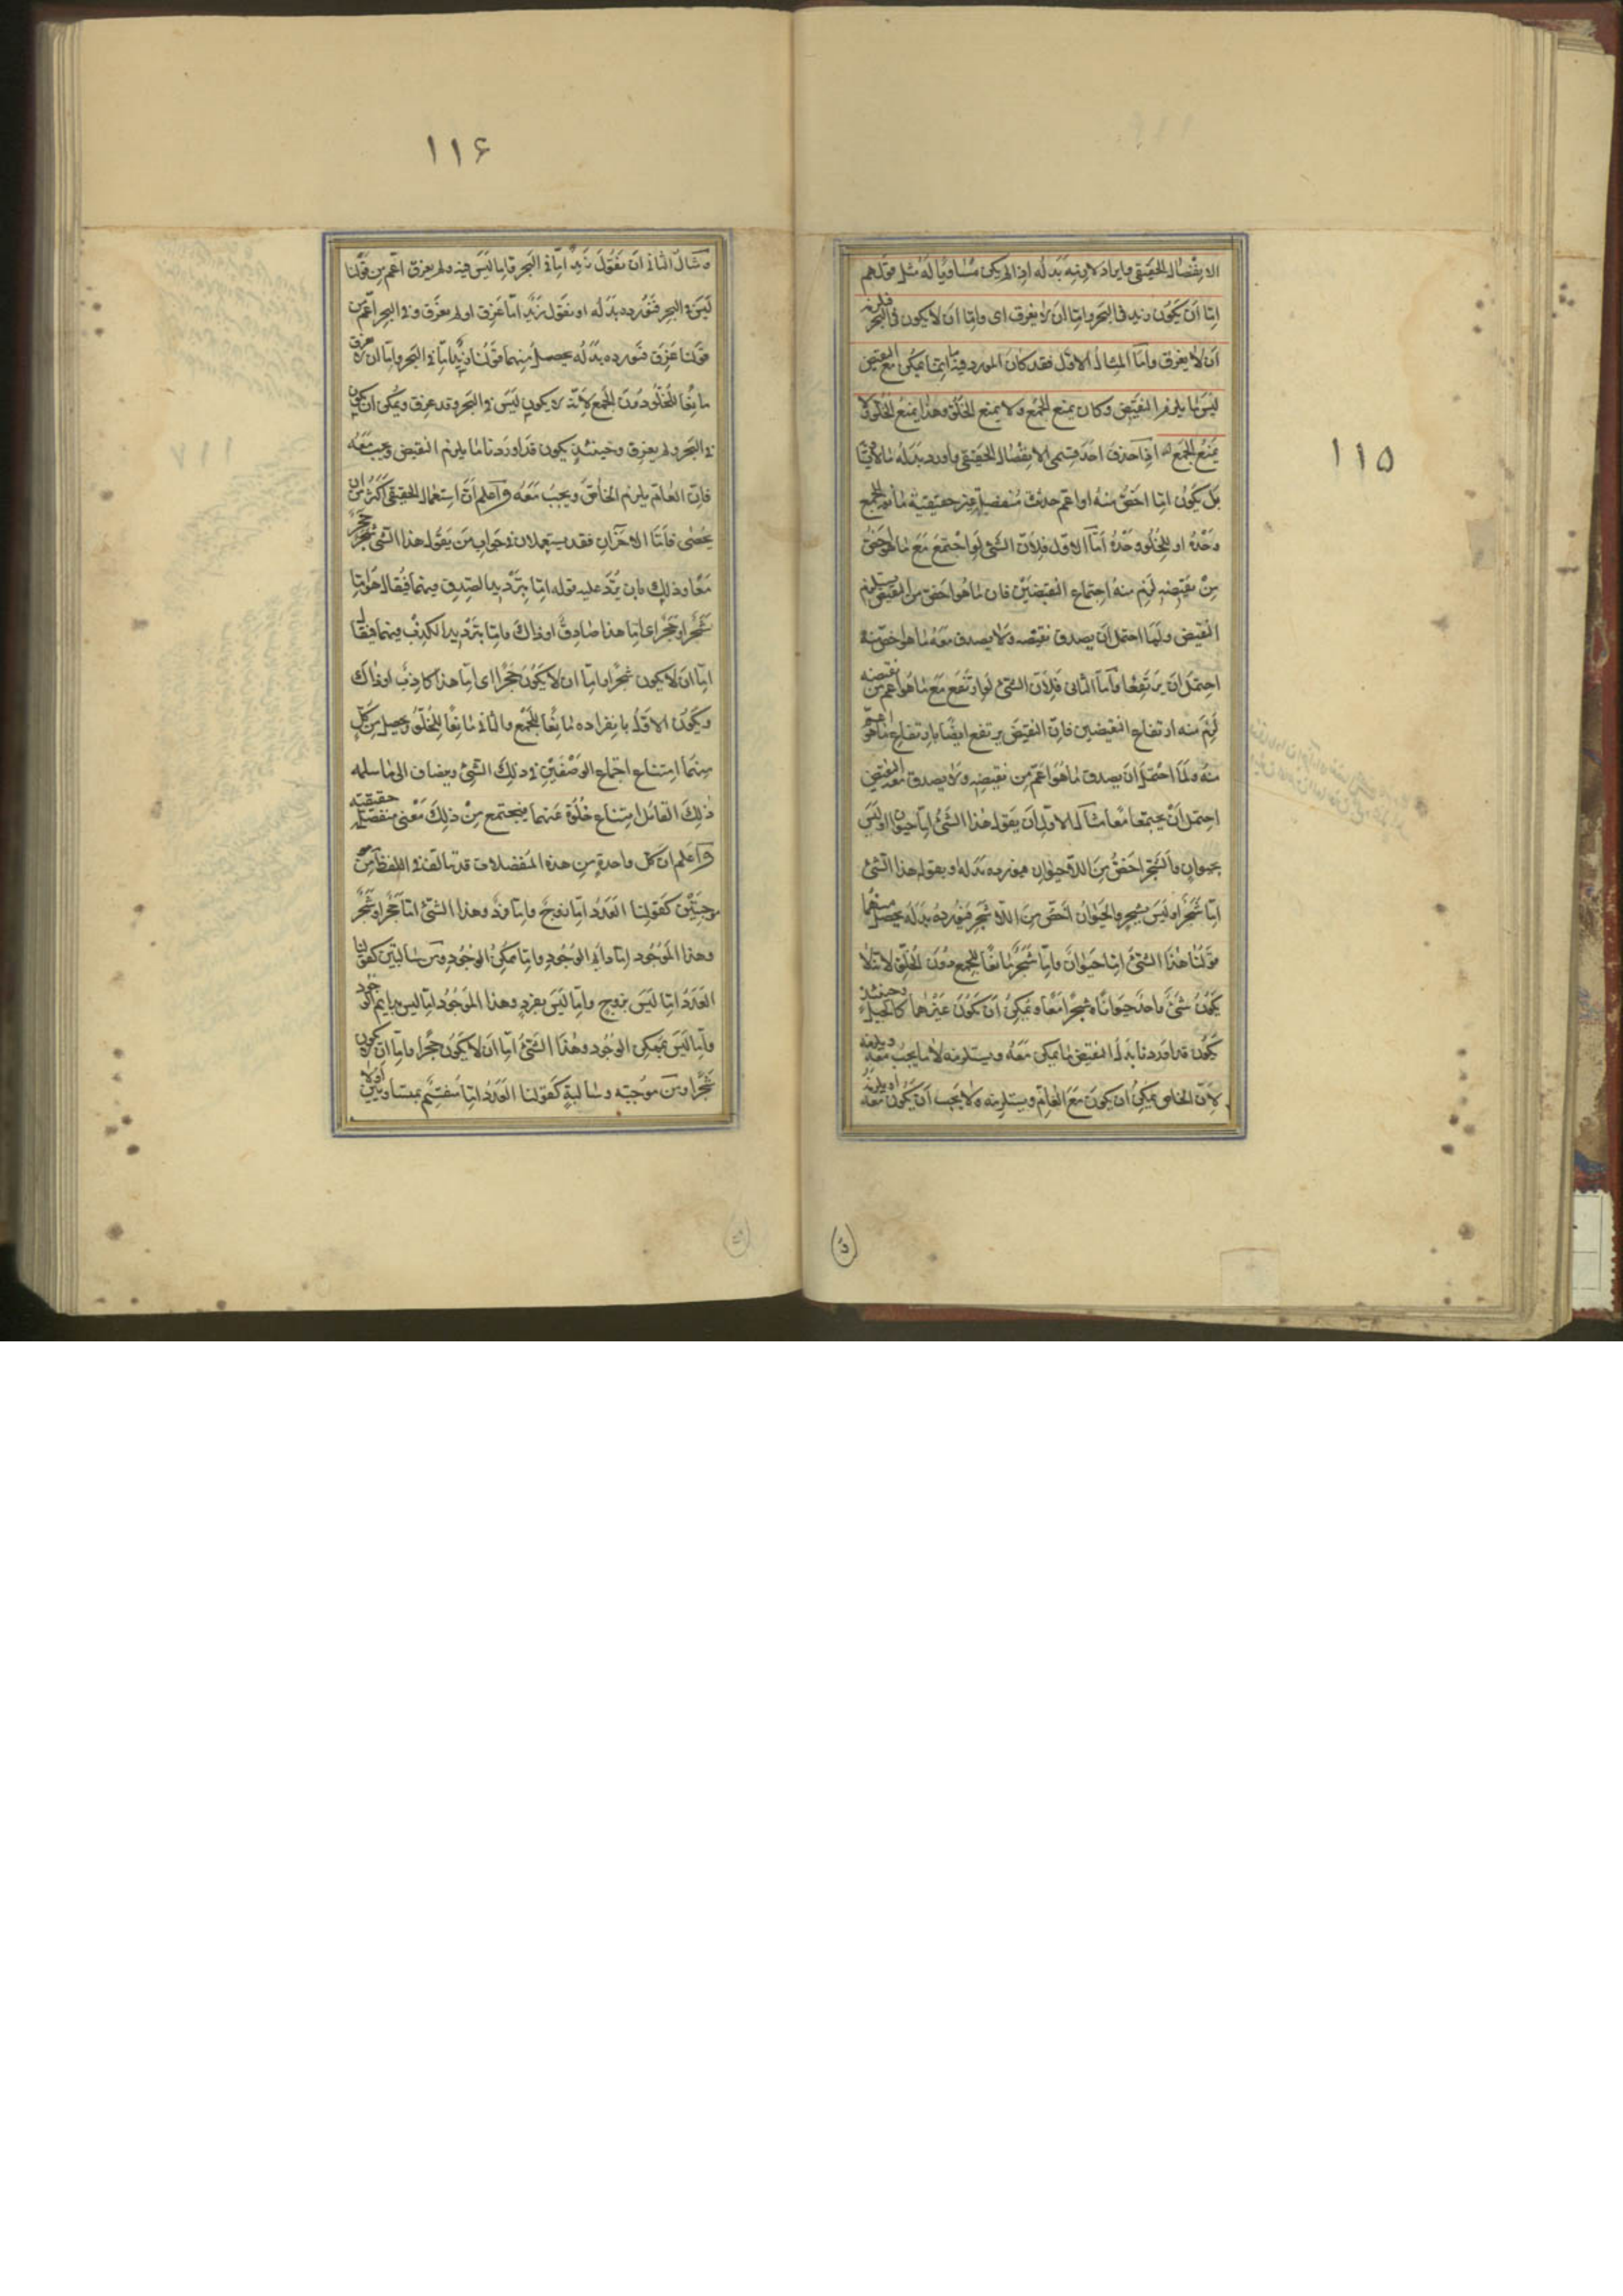 ١١٥
الانفصال الحقيقى وايراد لازمه بدله اذا لم يكن مساويا له مثل قولهم
اما ان يكون زيد فى البحر واما ان لا يغرق اى واما ان لا يكون فى البحر فلزمه
ان لا يغرق واما المثال الاول فقد كان المورد فيه ما انما يمكن مع النقيض
ليس ما يلزم النقيض وكان يمنع الجمع ولا يمنع الخلو وهذا يمنع الخلو ولا
يمنع الجمع اذا حذف احد قسمى الانفصال الحقيقى واورد بدله ما لا يساويه
بل يكون اما اخص منه او اعم حدثت منفصلة غير حقيقية مانعة للجمع
وحده او للخلو وحده اما الاول فلان الشئ لو اجتمع مع ما هو اخص
من نقيضه لزم منه اجتماع النقيضين فان ما هو اخص من النقيض يستلزم
النقيض ولما احتمل ان يصدق نقيضه ولا يصدق معه ما هو اخص منه
احتمل ان يرتفعا واما الثانى فلان الشئ لو ارتفع مع ما هو اعم من نقيضه
لزم منه ارتفاع النقيضين فان النقيض يرتفع ايضا بارتفاع ما هو اعم
منه ولما احتمل ان يصدق ما هو اعم من نقيضه ولا يصدق معه النقيض
احتمل ان يجتمعا معا مثال الاول ان يقول هذا الشئ اما حيوان او ليس
بحيوان والشجر اخص من اللاحيوان فيورده بدله او يقول هذا الشئ
اما شجر او ليس بشجر والحيوان اخص من اللاشجر فيورده بدله يحصل منهما
قولنا هذا الشئ اما حيوان واما شجر مانعا للجمع دون الخلو لانه لا
يكون شئ واحد حيوانا وشجرا معا ويمكن ان يكون غيرهما كالجبل وحينئذ
يكون قد اوردنا بدل النقيض ما يمكن معه ويستلزمه لا ما يجب معه ويلزمه
لان الخاص يمكن ان يكون مع العام ويستلزمه ولا يجب ان يكون معه او يلزمه
١١۶
ومثال الثانى ان نقول زيد اما فى البحر واما ليس فيه ولم يغرق اعم من قولنا
ليس فى البحر فنورده بدله او نقول زيد اما غرق او لم يغرق وفى البحر اعم من
قولنا غرق فنورده بدله يحصل منهما قولنا زيد اما فى البحر واما ان لا يغرق
مانعا للخلو دون الجمع لانه لا يكون ليس فى البحر وقد غرق ويمكن ان يكون
فى البحر ولم يغرق وحينئذ يكون قد اوردنا ما يلزم النقيض ويجب معه
فان العام يلزم الخاص ويجب معه واعلم ان استعمال الحقيقى اكثر من ان
يحصى واما الاخران فقد يستعملان فى جواب من يقول هذا الشئ شجر حجر
معا وذلك بان يرد عليه قوله اما بترديد الصدق فيهما فيقال هو اما
شجر او حجر اى اما هذا صادق او ذاك واما بترديد الكذب فيهما فيقال
اما ان لا يكون شجرا واما ان لا يكون حجرا اى اما هذا كاذب او ذاك
ويكون الاول بانفراده مانعا للجمع والثانى مانعا للخلو ويحصل من كل
منهما امتناع اجتماع الوصفين فى ذلك الشئ ويضاف الى ما سلمه
ذلك القائل امتناع خلوه عنهما فيجتمع من ذلك معنى منفصلة حقيقية
واعلم ان كل واحدة من هذه المنفصلات قد تتالف فى اللفظ من
موجبتين كقولنا العدد اما زوج واما فرد وهذا الشئ اما حجر او شجر
وهذا الموجود اما دايم الوجود واما ممكن الوجود ومن سالبتين كقولنا
العدد اما ليس بزوج واما ليس بفرد وهذا الموجود اما ليس بدايم الوجود
واما ليس بممكن الوجود وهذا الشئ اما ان لا يكون حجرا واما ان لا يكون
شجرا ومن موجبة وسالبة كقولنا العدد اما منقسم بمتساويين او لا